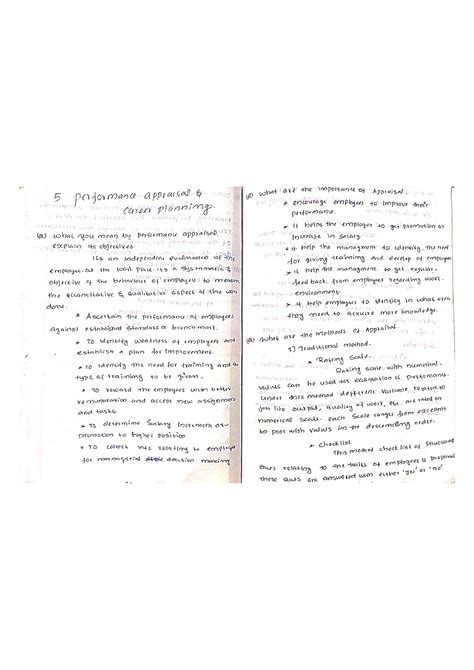 5 Performance appraisal &
career planning.
(Q) What you mean by performance appraisal
explain its objectives.
It is an independent evaluation of the
employee at the work place it is a systematic &
objective of the behaviour of employee to measure
the quantitative & qualitative aspect of the work
done.
* Ascertain the performance of employees
against established standards
* To identify weakness of employees and
establish a plan for improvement
* To identify the need for training and
type of training to be given.
* To reward the employees with better
remuneration and access new assignment
and tasks.
* To determine Salary increment or
promotion to higher position
* To collect relating to employee
for managerial decision making.
(Q) What are the importance of Appraisal.
* encourage employees to improve their
performance.
* It helps the employee to get promotion or
increase in salary.
* it help the managment to identify the need
for giving training and develop of employee
* It help the managment to get regular
feed back from employees regarding work
environment.
* it help employees to identify in what area
they need to acquire more knowledge.
(Q) What are the methods of Appraisal
1) Traditional method.
* Rating Scale
Rating scale with numerical
values can be used for evaluation of performance
Under this method different variable related to
job like output, quality of work, etc. are rated on
numerical scale. each scale ranges from excellent
to poor with values in the descending order.
* Checklist
This method check list of structured
Ques relating to the tasks of employees is prepared
these ques are answered with either 'yes' or 'no'.